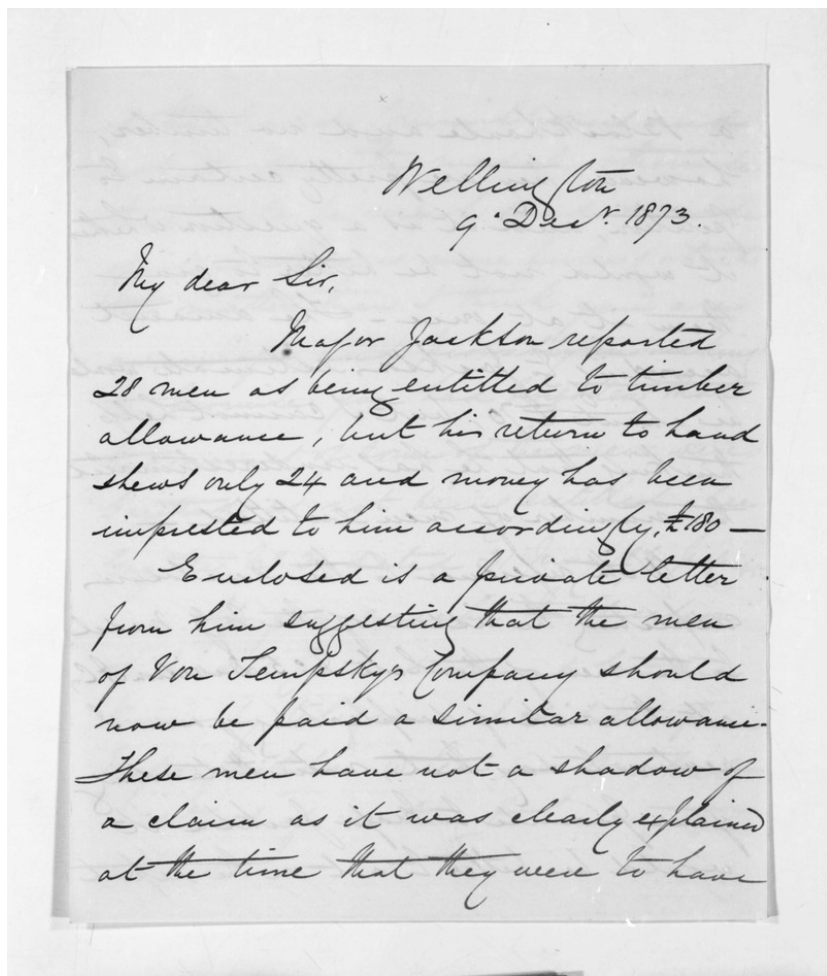 Wellington
9' Decr. 1873.
My dear Sir,
Major Jackson reported
28 men as being entitled to timber
allowance, but his return to hand
shews only 24 and money has been
imprested to him accordingly, £180 —
Enclosed is a private letter
from him suggesting that the men
of Von Tempskys Company should
now be paid a similar allowance.
These men have not a shadow of
a claim as it was clearly explained
at the time that they were to have